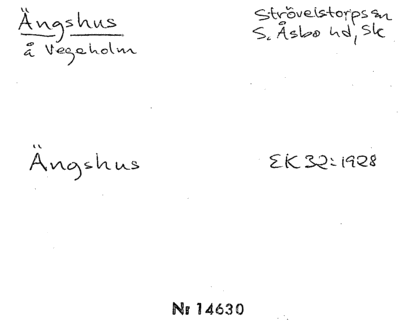 Ängshus
å Vegeholm
Strövelstorps sn
S. Åsbo hd, Sk
Ängshus
EK 32: 1928
Nr 14630